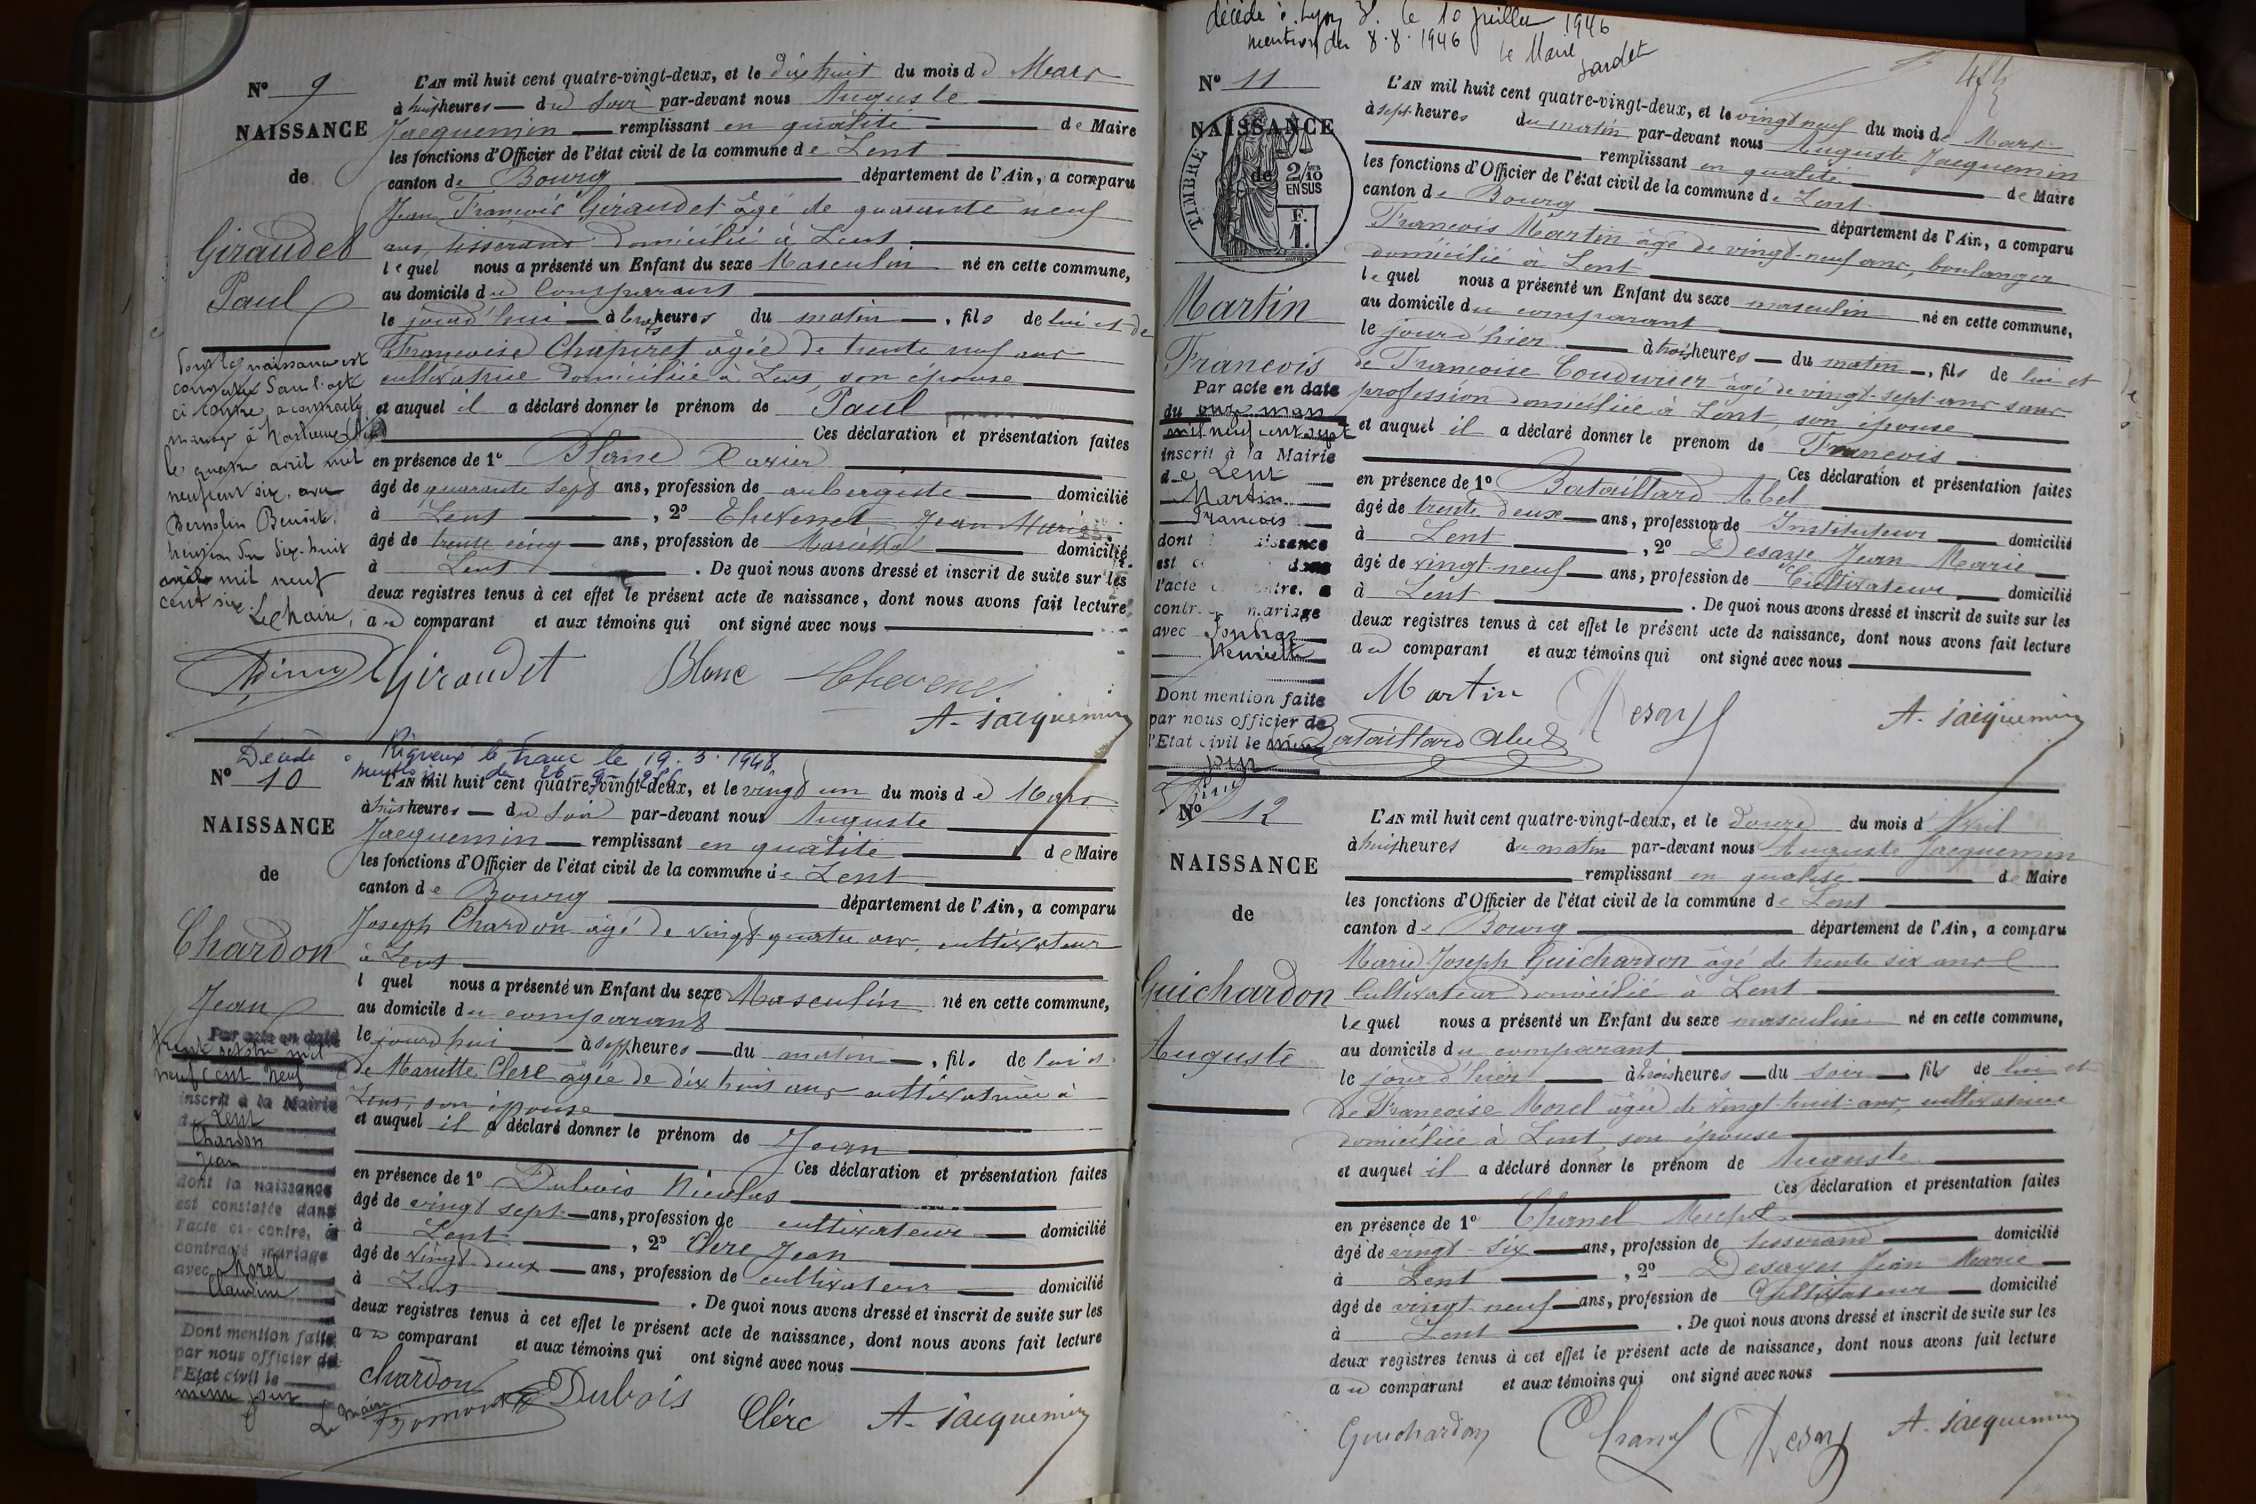 Nº 9
NAISSANCE
de
Giraudet
Paul
L'AN mil huit cent quatre-vingt-deux, et le dix huit du mois de Mars
à huit heures du soir par-devant nous Auguste
Jacquemin remplissant en qualité de Maire
les fonctions d'Officier de l'état civil de la commune de Lent
canton de Bourg département de l'Ain, a comparu
Jean François Giraudet âgé de quarante neuf
ans, tisserand domicilié à Lent
lequel nous a présenté un Enfant du sexe Masculin né en cette commune,
au domicile du Comparant
le jourd'hui à heures du matin, fils de lui et de
Françoise Chapiret âgée de trente neuf ans
cultivatrice domiciliée à Lent, son épouse
et auquel il a déclaré donner le prénom de Paul
Ces déclaration et présentation faites
en présence de 1º Blanc Xavier
âgé de quarante sept ans, profession de aubergiste domicilié
à Lent, 2º Chevenet Jean Marie
âgé de trente cinq ans, profession de domicilié
à Lent. De quoi nous avons dressé et inscrit de suite sur les
deux registres tenus à cet effet le présent acte de naissance, dont nous avons fait lecture
au comparant et aux témoins qui ont signé avec nous
ci contre a contracté
mariage à
le quatre avril mil
neuf cent six avec
Benoite.
dix-huit
avril mil neuf
cent six.
Le Maire,
Giraudet Blanc Chevenet
A. Jacquemin
Décédé à Rigneux le Franc le 19.3.1948
Nº 10
NAISSANCE
de
Chardon
Jean
L'AN mil huit cent quatre-vingt-deux, et le vingt un du mois de Mars
à heures du soir par-devant nous Auguste
Jacquemin remplissant en qualité de Maire
les fonctions d'Officier de l'état civil de la commune de Lent
canton de Bourg département de l'Ain, a comparu
Joseph Chardon âgé de vingt quatre ans, cultivateur
à Lent
l quel nous a présenté un Enfant du sexe Masculin né en cette commune,
au domicile du comparant
le jourd'hui à sept heures du matin, fils de lui et
de Mariette Clerc âgée de dix huit ans cultivatrice à
Lent, son épouse
et auquel il a déclaré donner le prénom de Jean
Ces déclaration et présentation faites
en présence de 1º Dubois Nicolas
âgé de vingt sept ans, profession de cultivateur domicilié
à Lent, 2º Clerc Jean
âgé de vingt-deux ans, profession de cultivateur domicilié
à Lent. De quoi nous avons dressé et inscrit de suite sur les
deux registres tenus à cet effet le présent acte de naissance, dont nous avons fait lecture
au comparant et aux témoins qui ont signé avec nous
Par acte en date
mil
neuf cent neuf
inscrit à la Mairie
de Lent
Chardon
Jean
dont la naissance
est constatée dans
l'acte ci-contre, a
contracté mariage
avec Morel
Claudine
Dont mention faite
par nous officier de
l'Etat civil le
même jour
Le Maire
Chardon Dubois Clerc A. Jacquemin
décédé à Lyon 3e le 10 juillet 1946
mention du 8.8.1946
le Maire
Nº 11
NAISSANCE
de
TIMBRE
2/10
EN SUS
F.
1.
Martin
François
L'AN mil huit cent quatre-vingt-deux, et le vingt neuf du mois de Mars
à sept heures du matin par-devant nous Auguste Jacquemin
remplissant en qualité de Maire
les fonctions d'Officier de l'état civil de la commune de Lent
canton de Bourg département de l'Ain, a comparu
François Martin âgé de vingt-neuf ans, boulanger
domicilié à Lent
lequel nous a présenté un Enfant du sexe masculin né en cette commune,
au domicile du comparant
le jour d'hier à trois heures du matin, fils de lui et
de Françoise Coudurier âgé de vingt-sept ans sans
profession domiciliée à Lent, son épouse
et auquel il a déclaré donner le prenom de François
Ces déclaration et présentation faites
en présence de 1º Bataillard Abel
âgé de trente deux ans, profession de Instituteur domicilié
à Lent, 2º Desaye Jean Marie
âgé de vingt-neuf ans, profession de Cultivateur domicilié
à Lent. De quoi nous avons dressé et inscrit de suite sur les
deux registres tenus à cet effet le présent acte de naissance, dont nous avons fait lecture
au comparant et aux témoins qui ont signé avec nous
Par acte en date
du onze mars
mil neuf cent sept
inscrit à la Mairie
de Lent
Martin
François
avec
Henriette
Dont mention faite
par nous officier de
l'Etat civil le même
jour
Martin Bataillard Abel A. Jacquemin
Nº 12
NAISSANCE
de
Guichardon
Auguste
L'AN mil huit cent quatre-vingt-deux, et le douze du mois d'Avril
à huit heures du matin par-devant nous Auguste Jacquemin
remplissant en qualité de Maire
les fonctions d'Officier de l'état civil de la commune de Lent
canton de Bourg département de l'Ain, a comparu
Marie Joseph Guichardon âgé de trente six ans
Cultivateur domicilié à Lent
lequel nous a présenté un Enfant du sexe masculin né en cette commune,
au domicile du comparant
le jour d'hier à trois heures du soir, fils de lui et
de Françoise Morel âgée de vingt huit ans, cultivatrice
domiciliée à Lent, son épouse
et auquel il a déclaré donner le prénom de Auguste
Ces déclaration et présentation faites
en présence de 1º Chanel
âgé de vingt-six ans, profession de tisserand domicilié
à Lent, 2º Desayes Jean Marie
âgé de vingt-neuf ans, profession de Cultivateur domicilié
à Lent. De quoi nous avons dressé et inscrit de suite sur les
deux registres tenus à cet effet le présent acte de naissance, dont nous avons fait lecture
au comparant et aux témoins qui ont signé avec nous
Guichardon Chanel A. Jacquemin